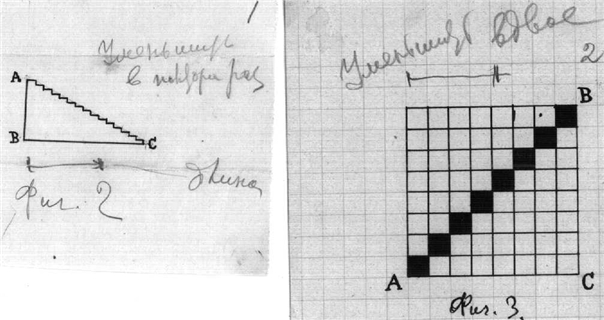 1
Уменьшить
в полтора раза
A
B
C
длина
Фиг. 2
Уменьшить вдвое
2
B
A
C
Фиг. 3.